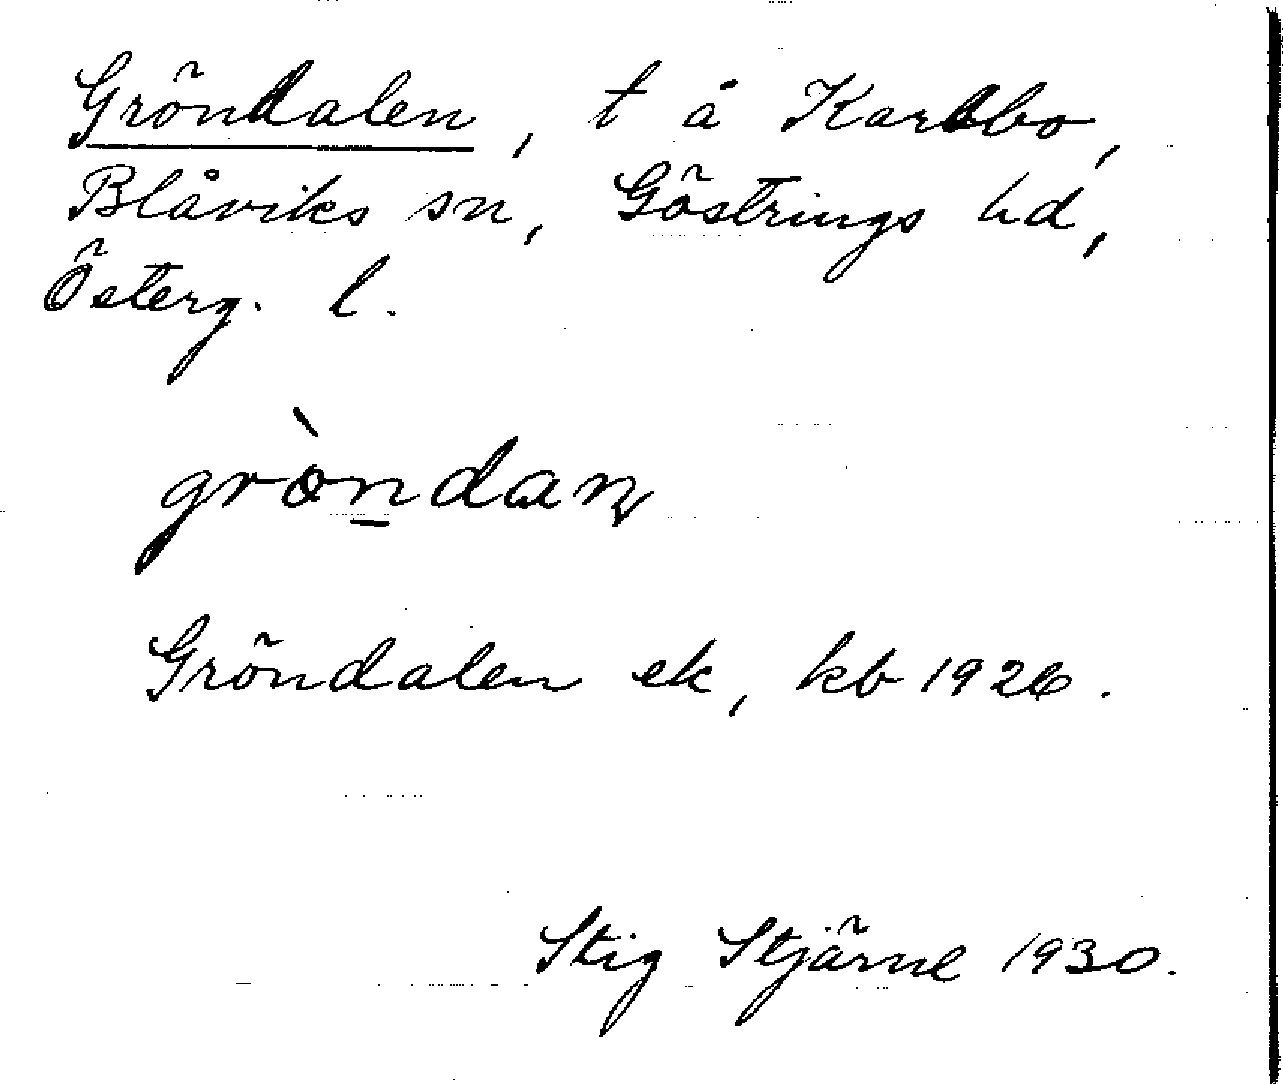 Gröndalen, t å Karbbo,
Blåviks sn, Göstrings hd,
Österg. l.
gròndan
Gröndalen ek, kb 1926.
Stig Stjärne 1930.